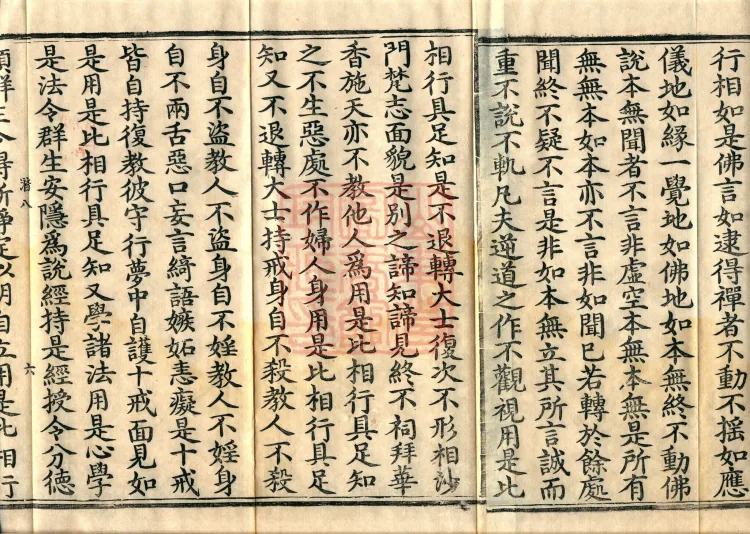 行相如是佛言如逮得禪者不動不揺如應
儀地如緣一覺地如佛地如本無終不動佛
說本無聞者不言非虛空本無本無是所有
無無本如本亦不言非如聞已若轉於餘處
聞終不疑不言是非如本無立其所言誠而
重不說不軌凡夫逆道之作不觀視用是比
相行具足知是不退轉大士復次不形相沙
門梵志面貌是別之諦知諦見終不祠拜華
香施天亦不教他人爲用是比相行具足知
之不生惡處不作婦人身用是比相行具足
知又不退轉大士持戒身自不殺教人不殺
身自不盜教人不盜身自不婬教人不婬身
自不兩舌惡口妄言綺語嫉妬恚癡是十戒
皆自持復教彼守行夢中自護十戒面見如
是用是比相行具足知又學諸法用是心學
是法令群生安隱爲說經持是經授令分德
潛八
六
生令得所淨定以明自立用是比相行